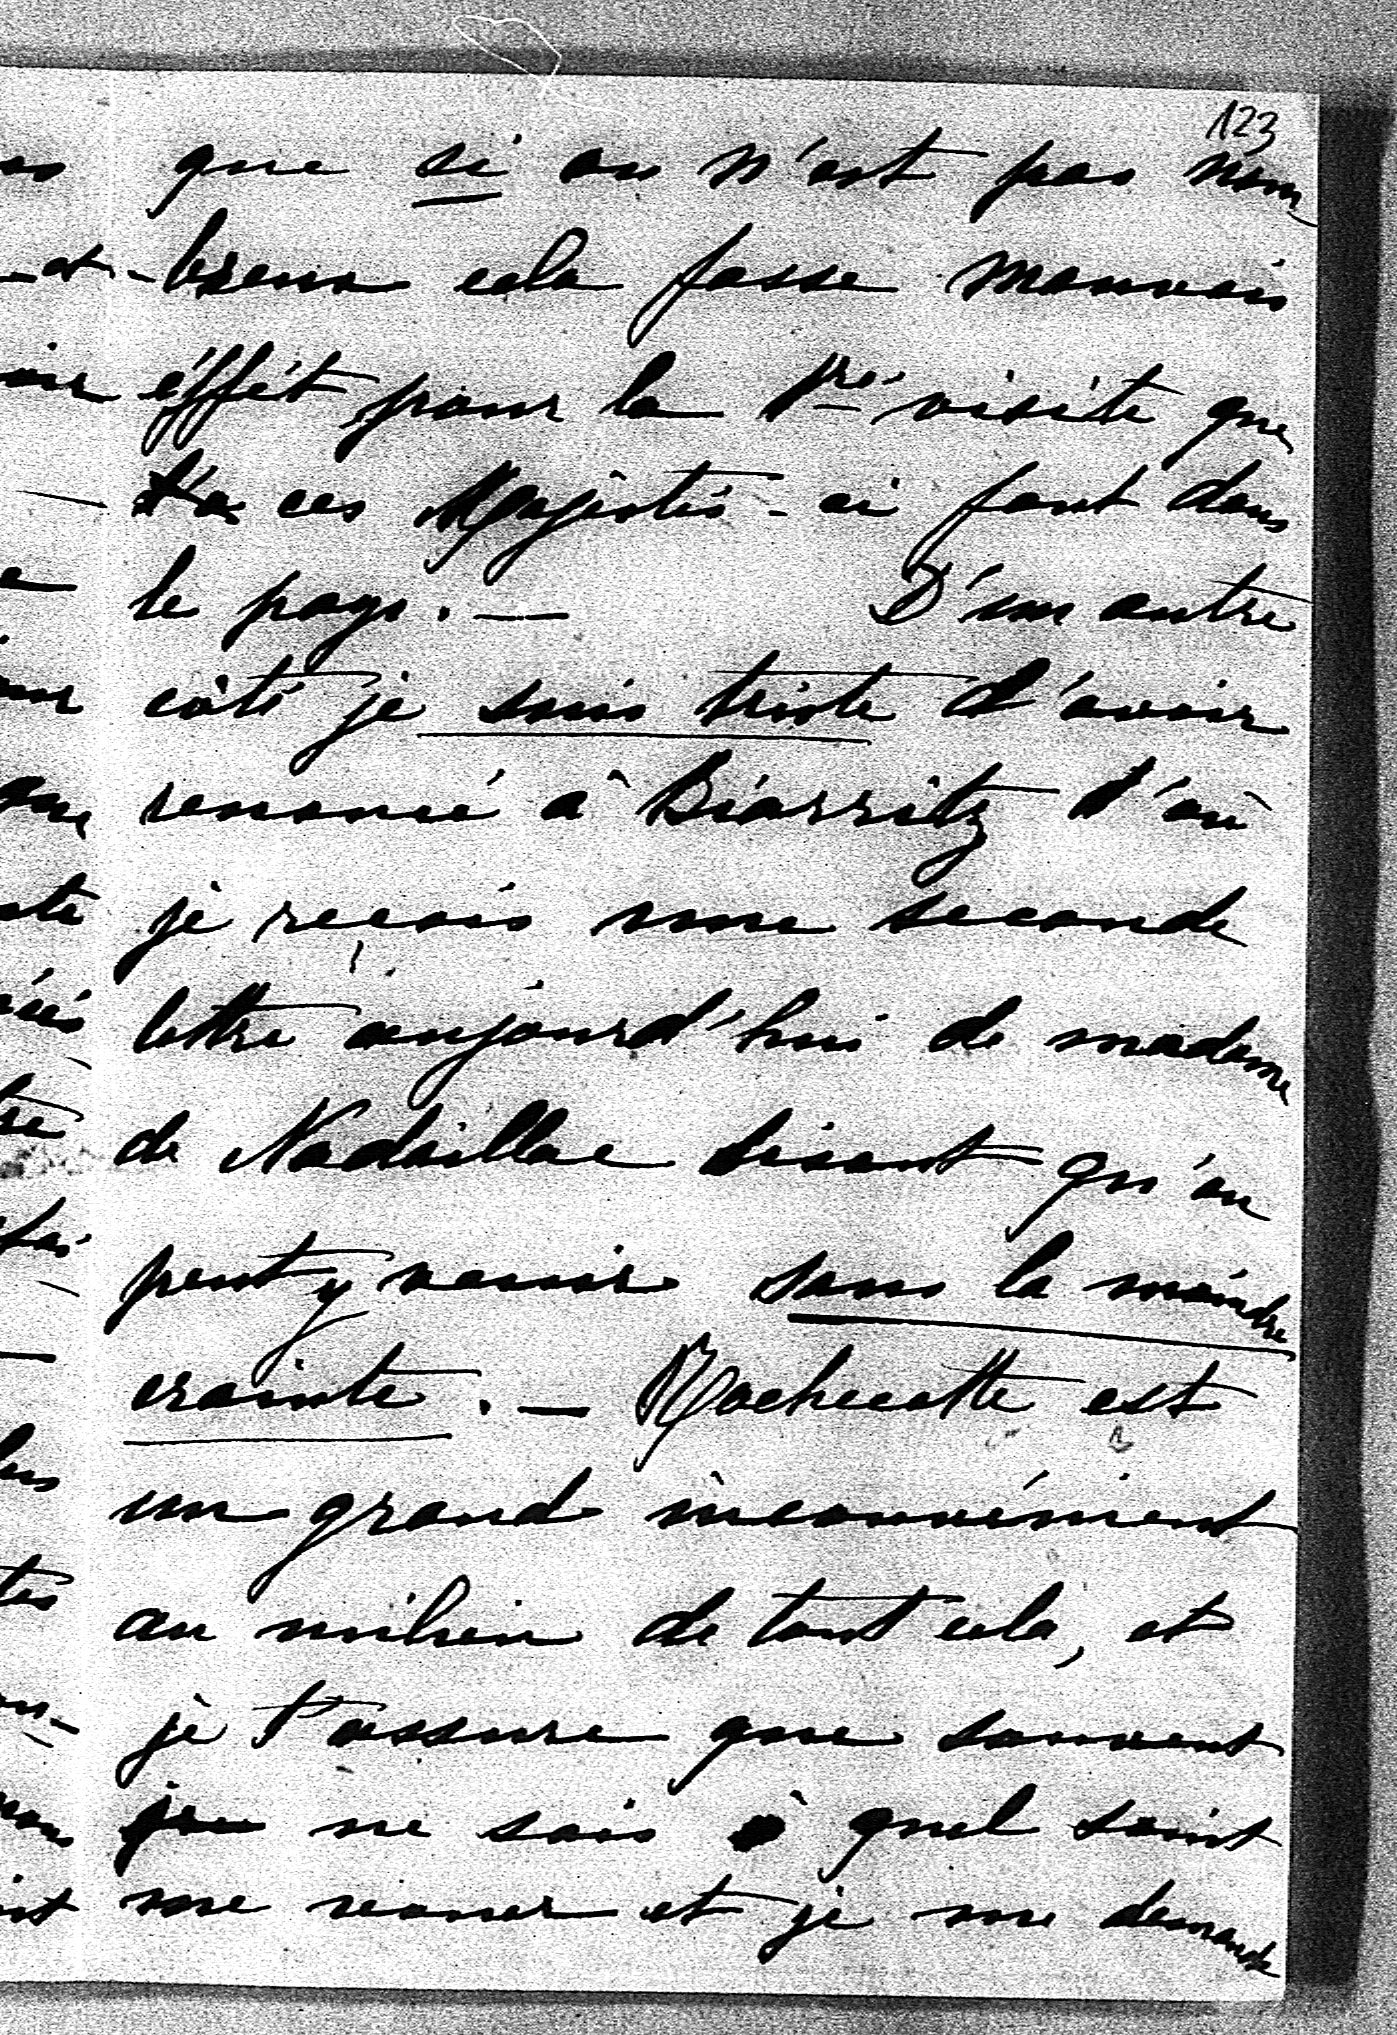 123
que si on n'est pas nom
-breux cela fasse mauvais
éffét pour la 1re visite que
ces Majestés-ci font dans
le pays. — D'un autre
côté je suis triste d'avoir
renoncé à Biarritz d'où
je reçois une seconde
lettre aujourd'hui de madame
de Nadaillac disant qu'on
peut y venir sans la moindre
crainte. — Rochecotte est
un grand inconvénient
au milieu de tout cela, et
je t'assure que souvent
je ne sais à quel saint
me vouer et je me demande